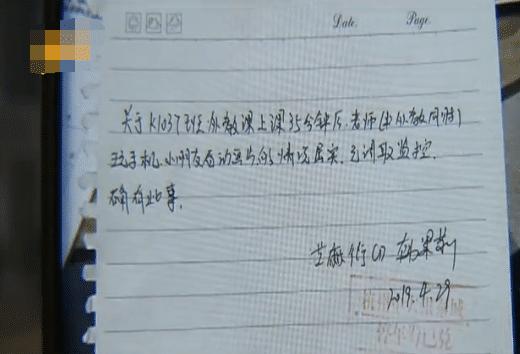 Date. Page.
关于K1037班外教课上课35分钟后,老师(中外教同时)
玩手机,小朋友看动画片的情况属实,已调取监控,
确有此事。
2019.4.29